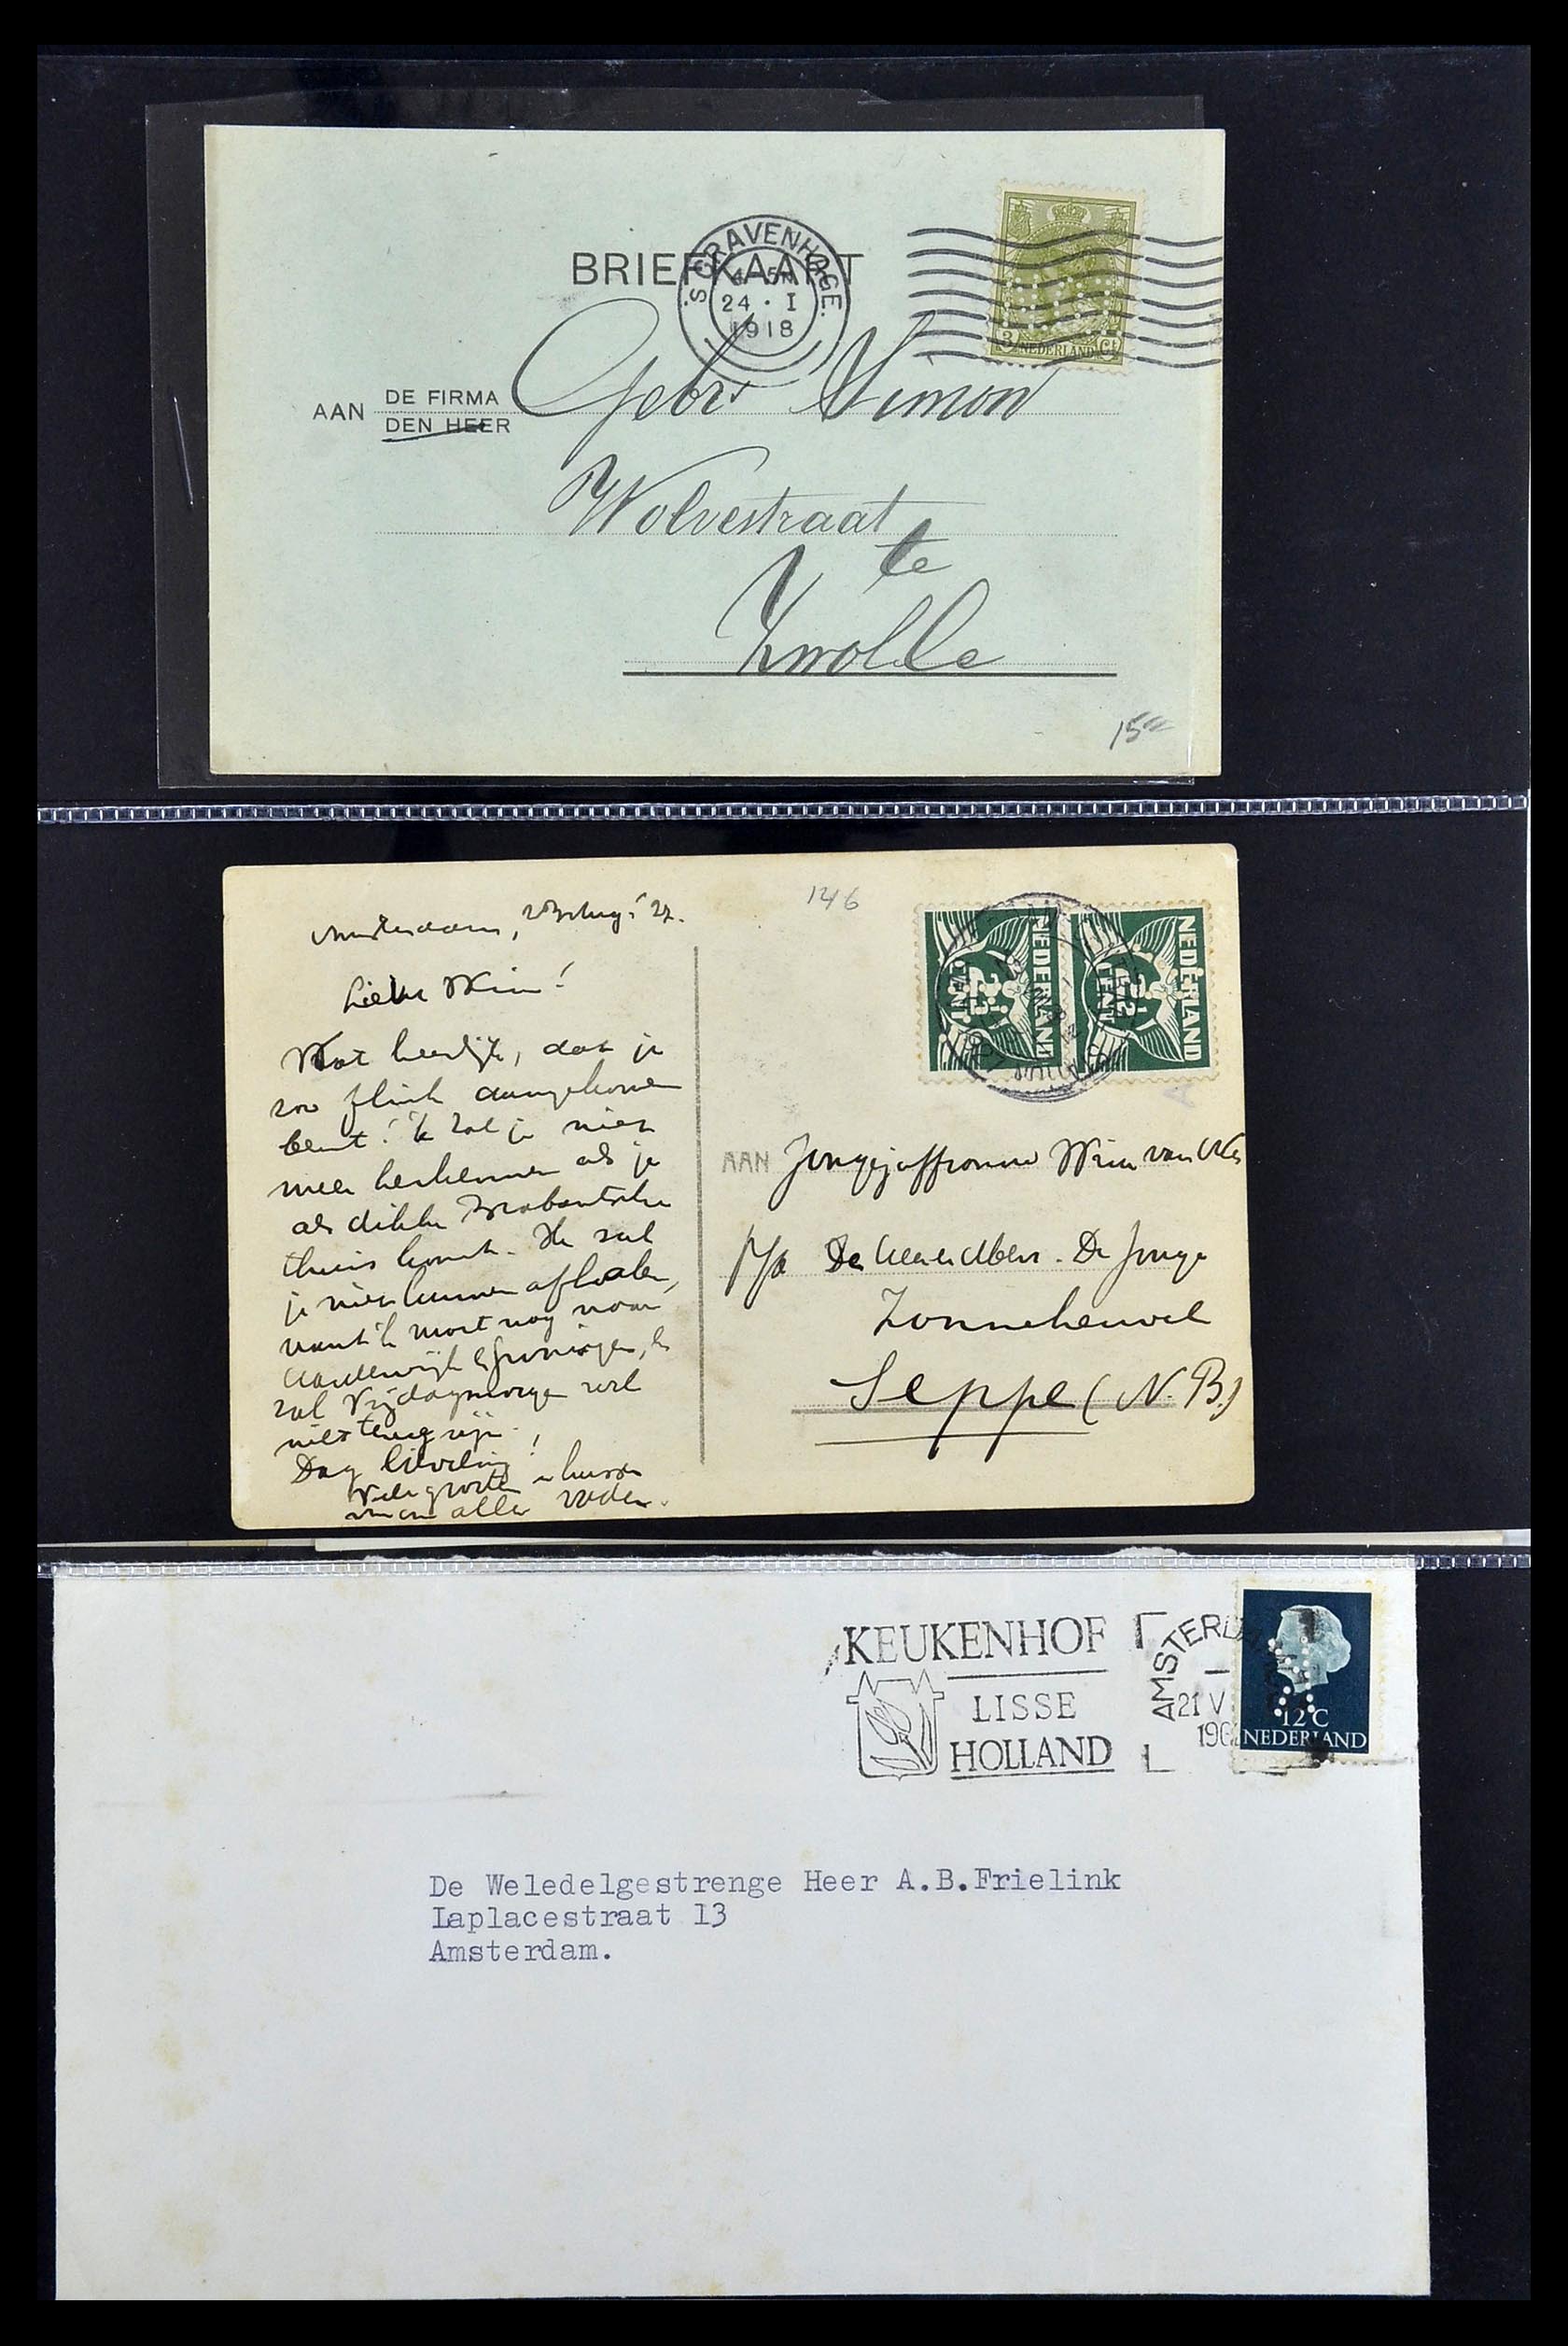 'S GRAVENHAGE.
24 · I
1918
BRIEFKAART
3 NEDERLAND Ct
AAN DE FIRMA
DEN HEER
Gebrs Simon
Wolvestraat
te
Zwolle
15
146
Amsterdam, Aug. '27.
Lieve Wim!
Wat heerlijk, dat je
zoo flink aangekomen
bent! 'k Zal je niet
meer herkennen als je
als dikke Brabantsche
thuis komt. Ik zal
je niet kunnen afhalen,
want 'k moet nog naar
Harderwijk & Groningen, &
zal Vrijdagmorgen wel
niet terug zijn.
Dag lieveling!
Vele groeten & kussen
van allen vader.
NEDERLAND
2½ CENT
NEDERLAND
2½ CENT
AAN Jongejuffrouw Wim van
p/a De Heer De Jonge
Zonneheuvel
Seppe (N.B.)
KEUKENHOF
LISSE
HOLLAND
AMSTERDA
21 V
196
12 C
NEDERLAND
De Weledelgestrenge Heer A.B.Frielink
Laplacestraat 13
Amsterdam.